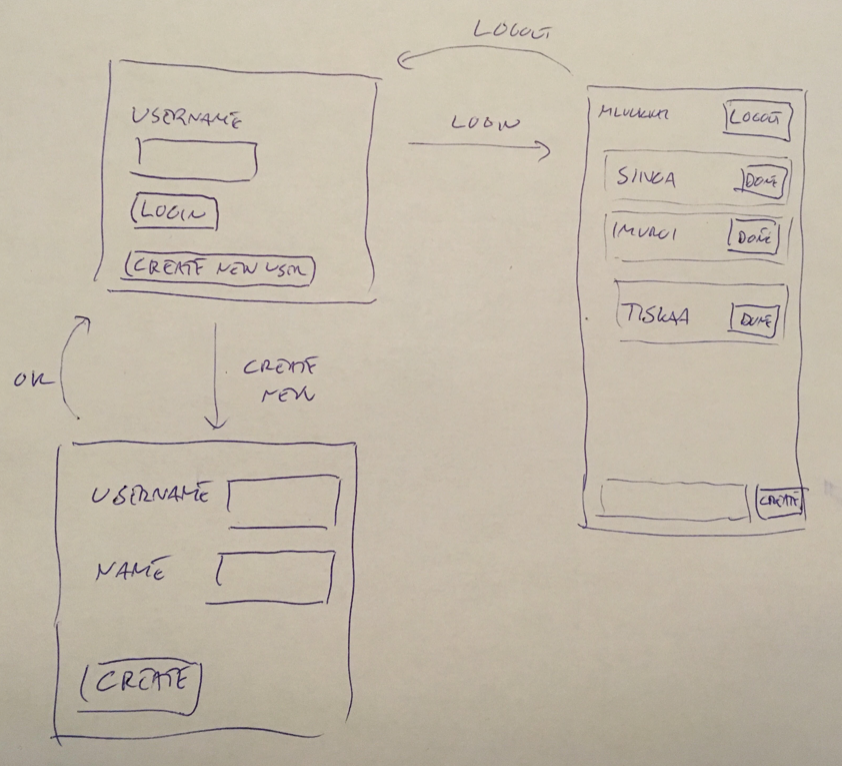 LOGOUT
USERNAME
LOGIN
CREATE NEW USER
LOGIN
MLUUKKAI LOGOUT
SIIVOA DONE
IMUROI DONE
TISKAA DONE
CREATE
OK
CREATE
NEW
USERNAME
NAME
CREATE